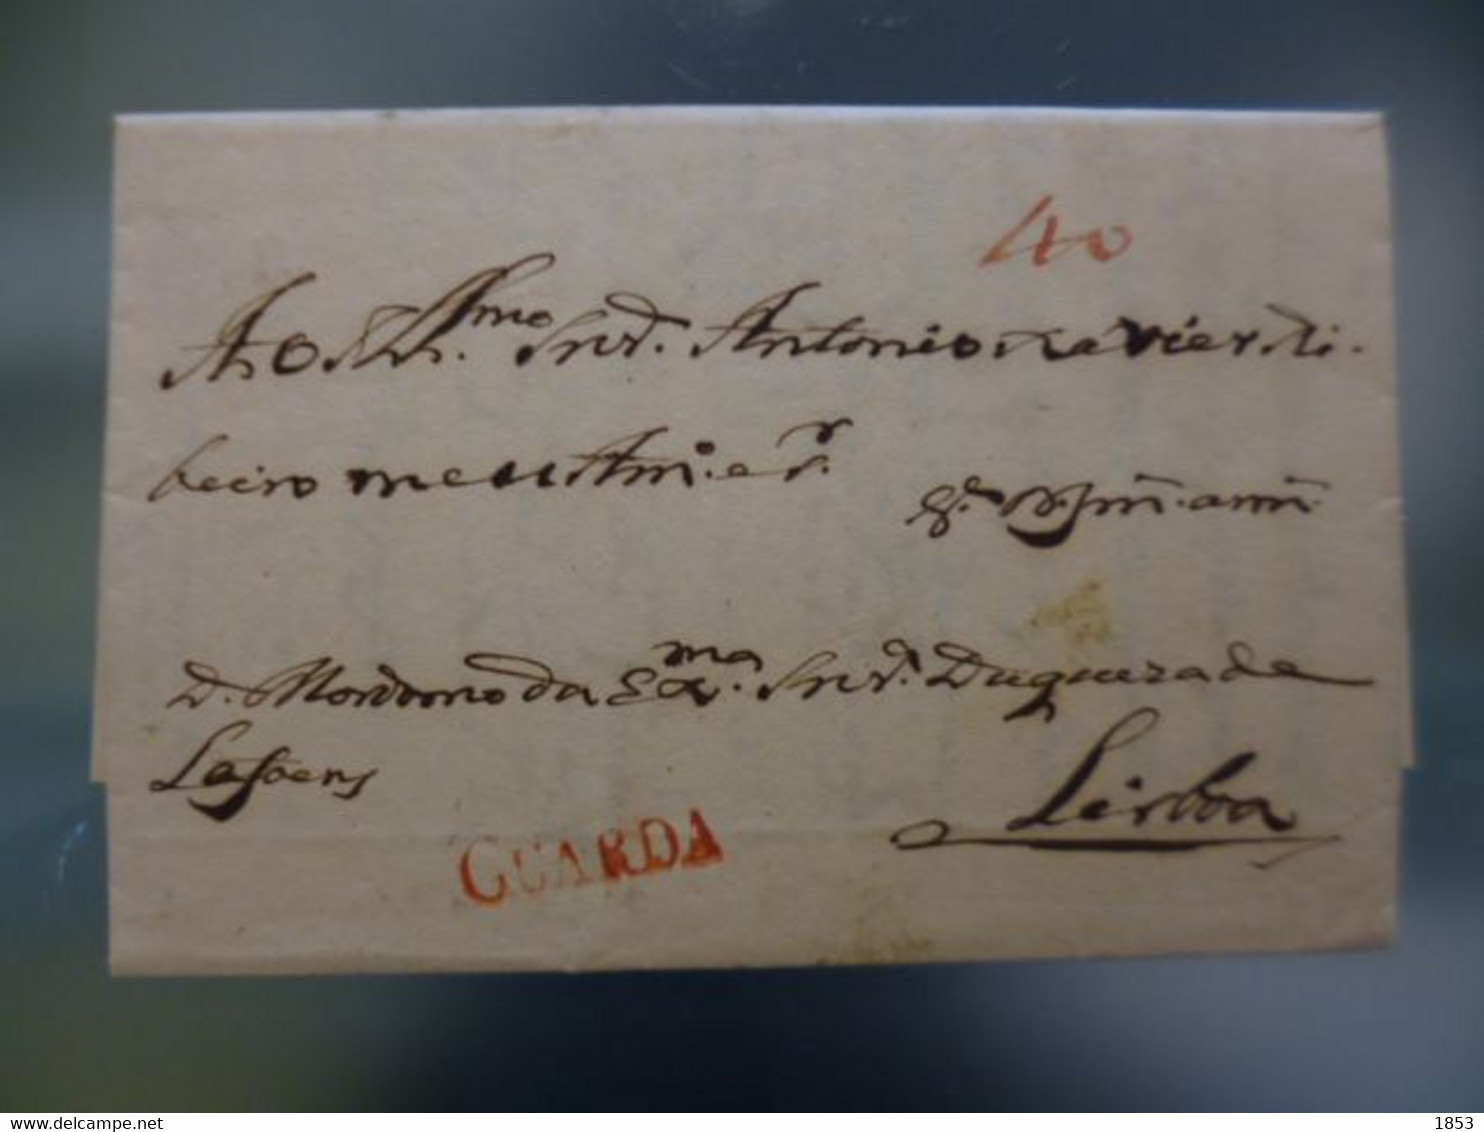 40
Ao Ill.mo Snr. Antonio Xavier Ri-
beiro meu Am.o e Sr.
D. Mordomo da Ex.ma Snr.a Duqueza de
Lafoens
Lisboa
GUARDA
delcampe.net
1853